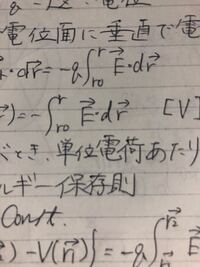 電位面に垂直で電
・d\vec{r} = -q∫_{r0}^{r} \vec{E}・d\vec{r}
) = -∫_{r0}^{r} \vec{E}・d\vec{r} [V]
とき、単位電荷あたり
ルギー保存則
Const.
) - V(\vec{r_1})} = -q∫_{\vec{r_1}}^{\vec{r_2}} \vec{E}